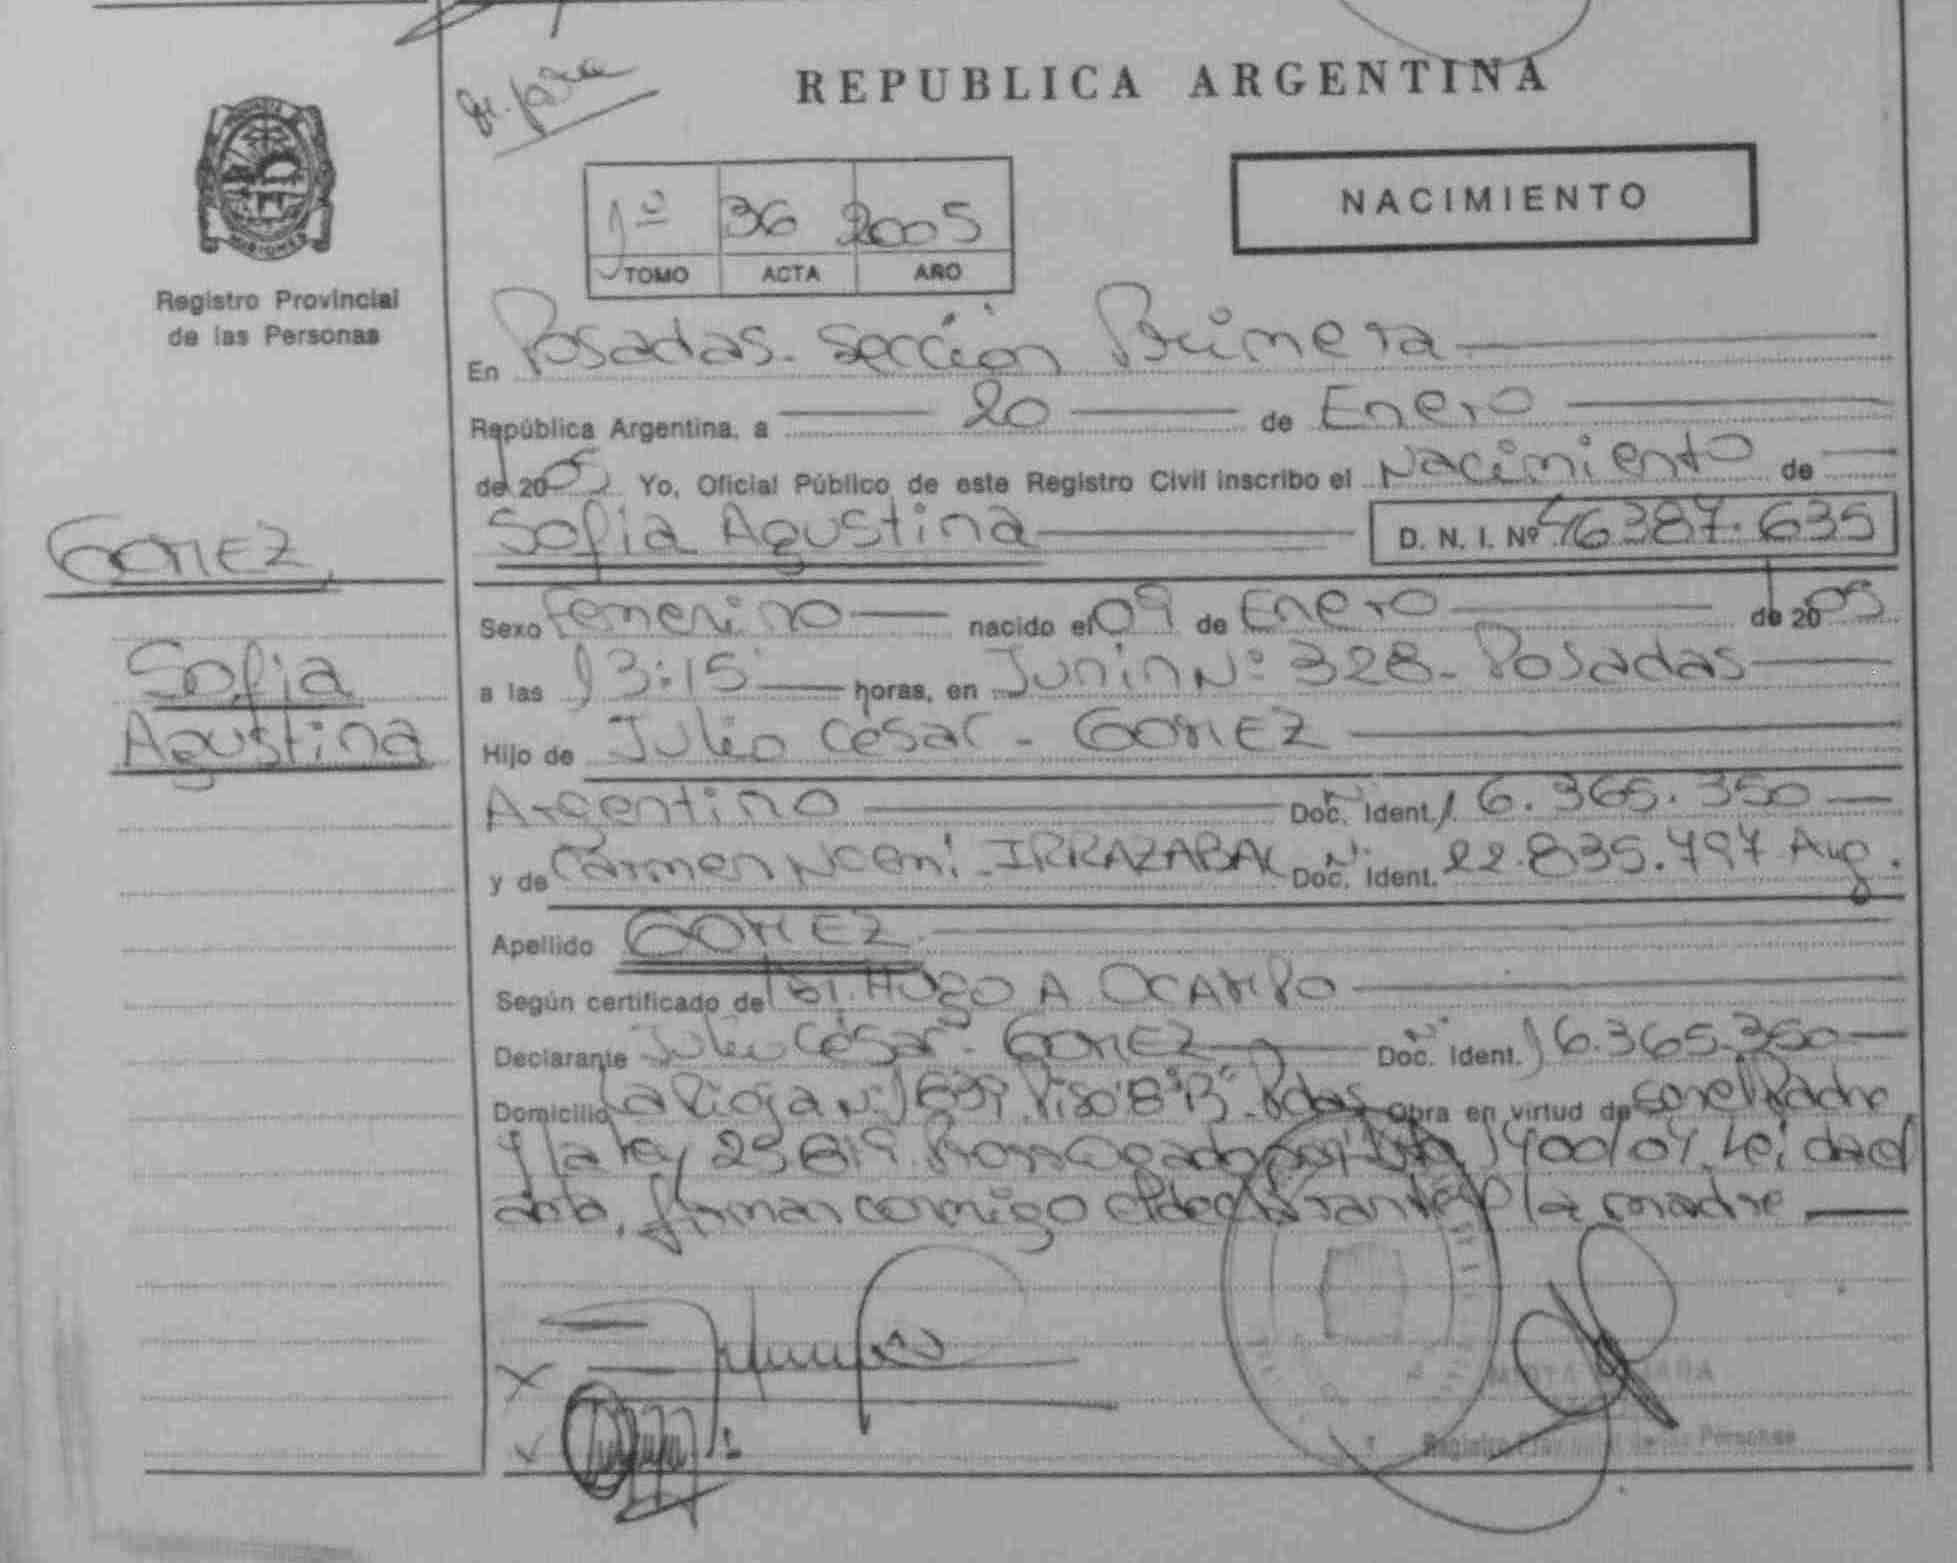 REPUBLICA ARGENTINA
NACIMIENTO
1º 36 2005
TOMO ACTA AÑO
MISIONES
Registro Provincial
de las Personas
En Posadas. Sección Primera
República Argentina, a 20 de Enero
de 2005 Yo, Oficial Público de este Registro Civil inscribo el Nacimiento de
Sofia Agustina D. N. I. Nº 46387.635
GOMEZ,
Sofia
Agustina
Sexo femenino nacido el 09 de Enero de 2005
a las 13:15 horas, en Junin Nº 328- Posadas
Hijo de Julio César - GOMEZ
Argentino Doc. Ident. 16.365.350
y de Carmen Noemí - IRRAZABAL Doc. Ident. 22.835.797 Arg.
Apellido GOMEZ
Según certificado de Dr. Hugo A OCAMPO
Declarante Julio César - GOMEZ Doc. Ident. 16.365.350
Domicilio La Rioja Nº 1639 Piso 8º "B" Pdas Obra en virtud de ser el Padre
y la ley 25.819. Prorrogado por 1400/04. Leida el
acta, firman conmigo el declarante y la madre
Registro Provincial de las Personas